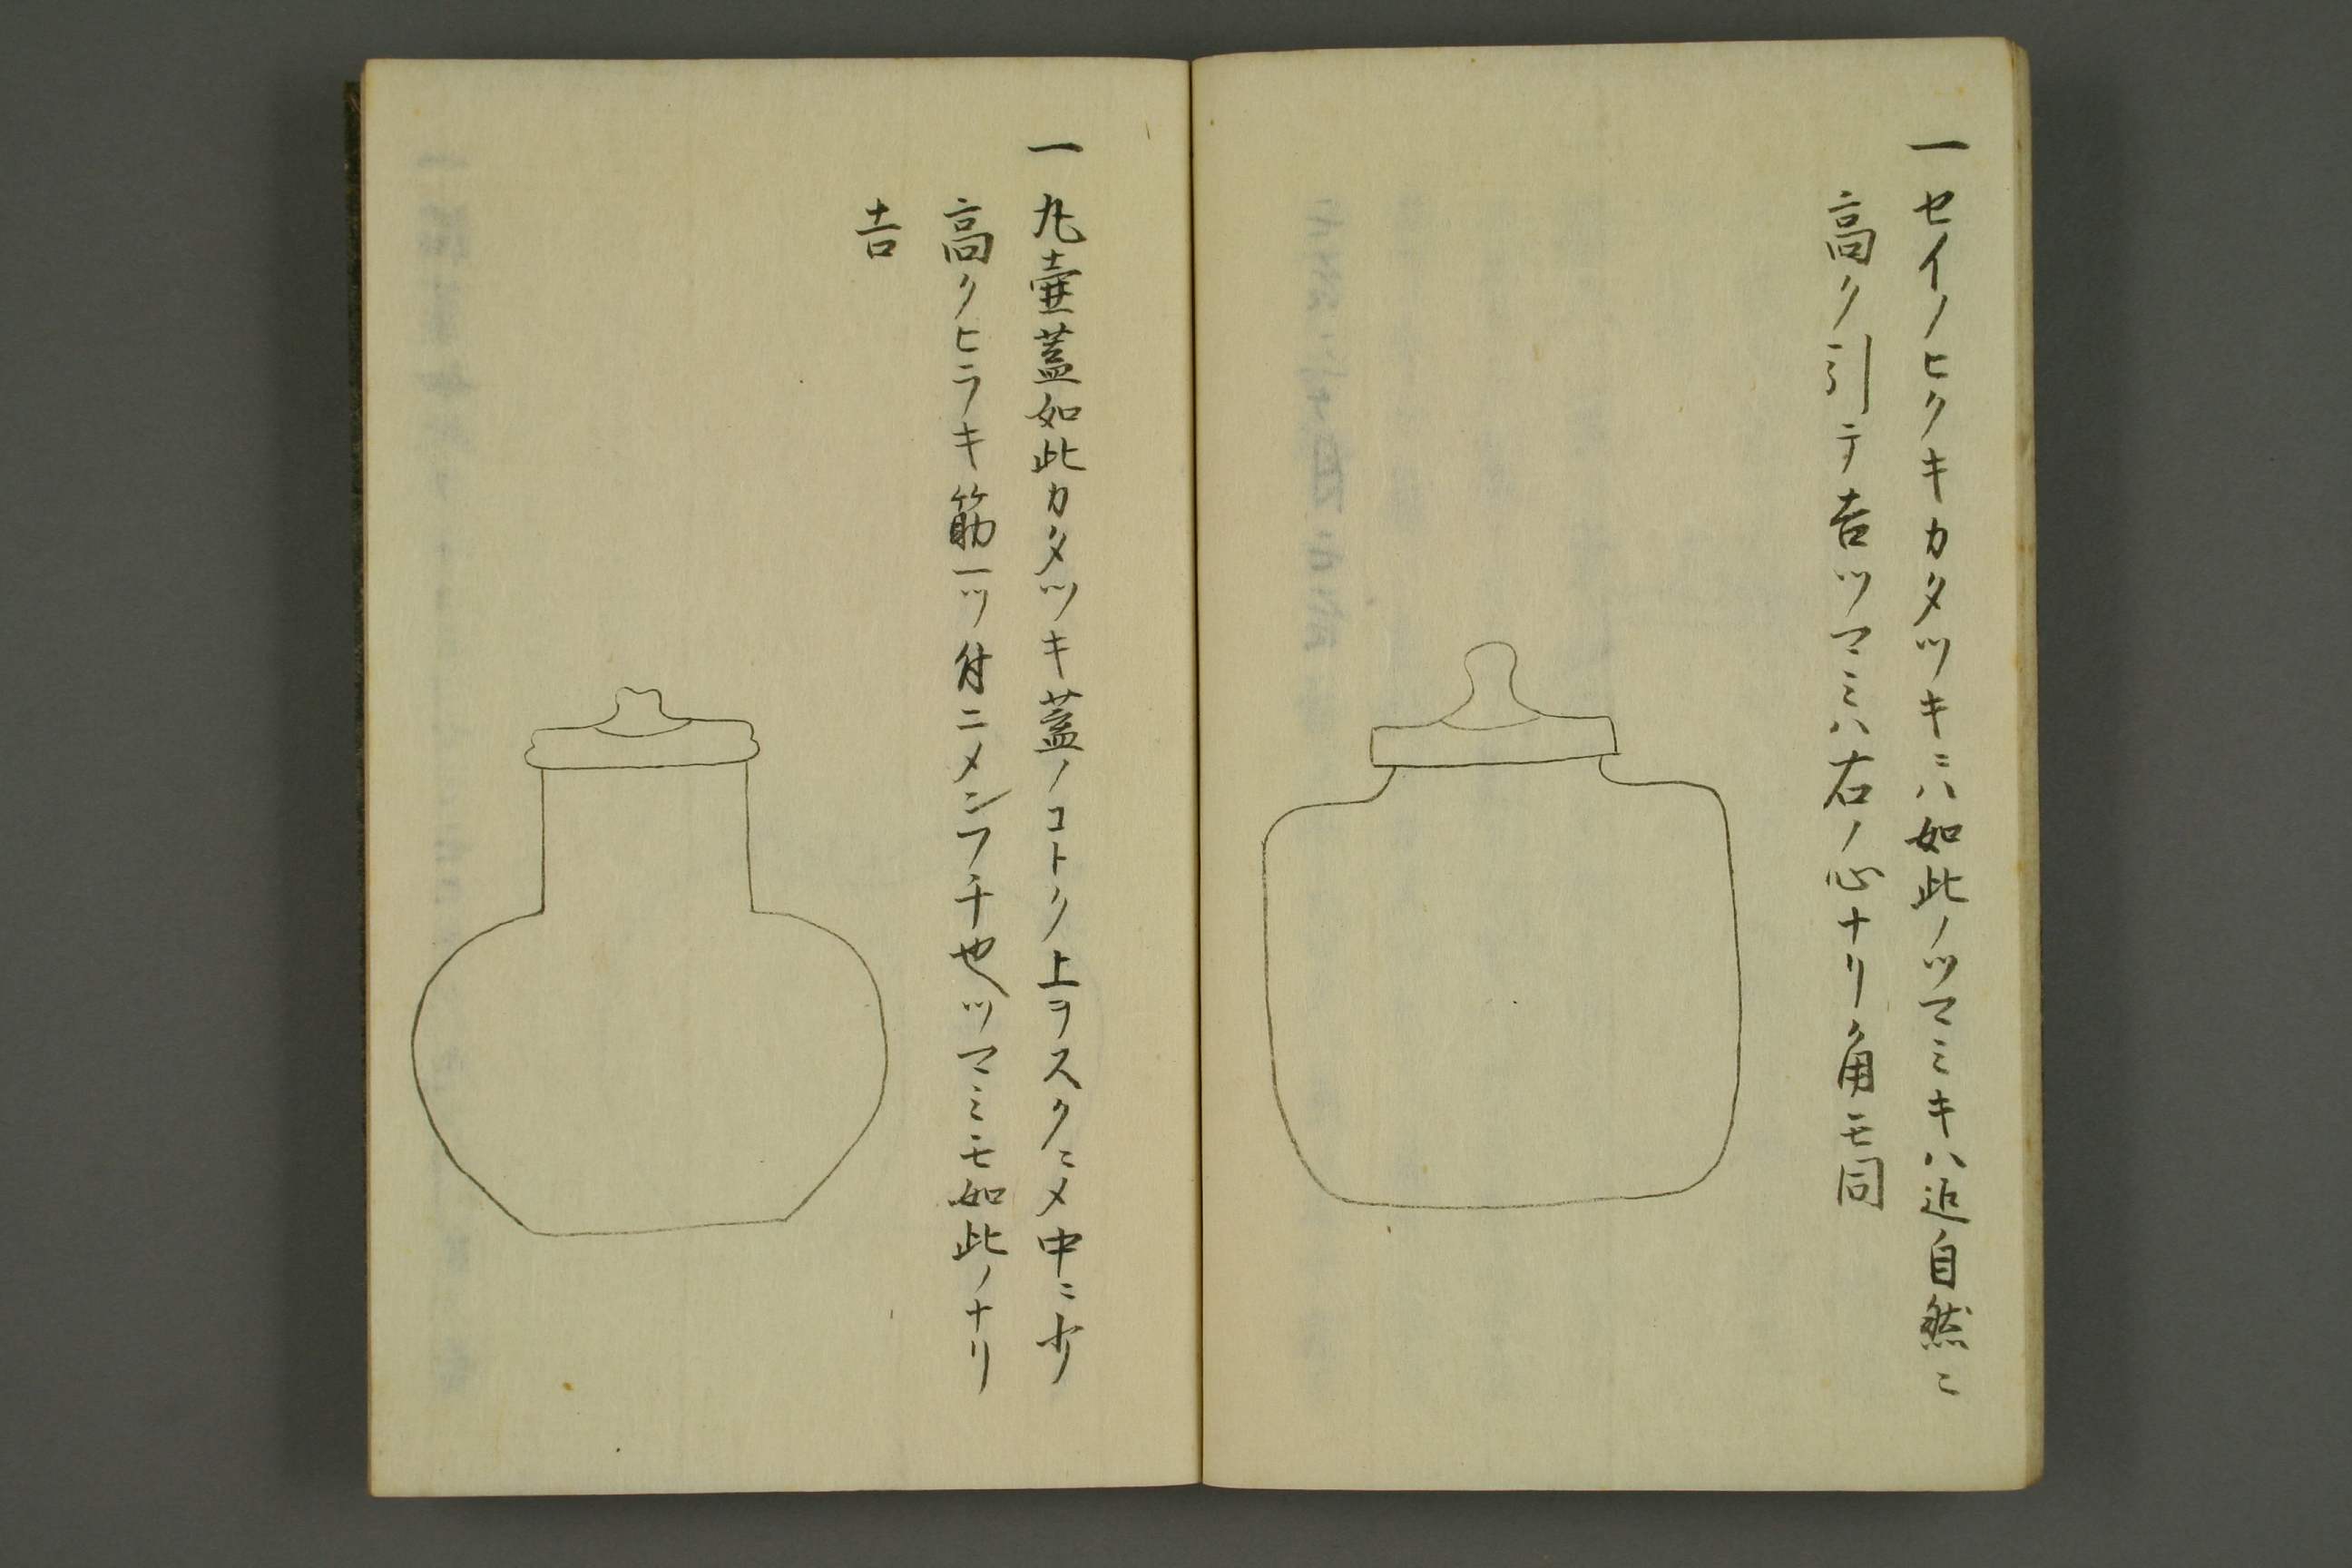 一セイノヒクキカタツキニハ如此ノツマミキハ迄自然ニ
高ク引テ吉ツマミハ右ノ心ナリ角モ同
一丸壷蓋如此カタツキ蓋ノコトク上ヲスクニメ中ニ少
高クヒラキ筋一ツ付ニメンフチ也ツマミモ如此ノナリ
吉